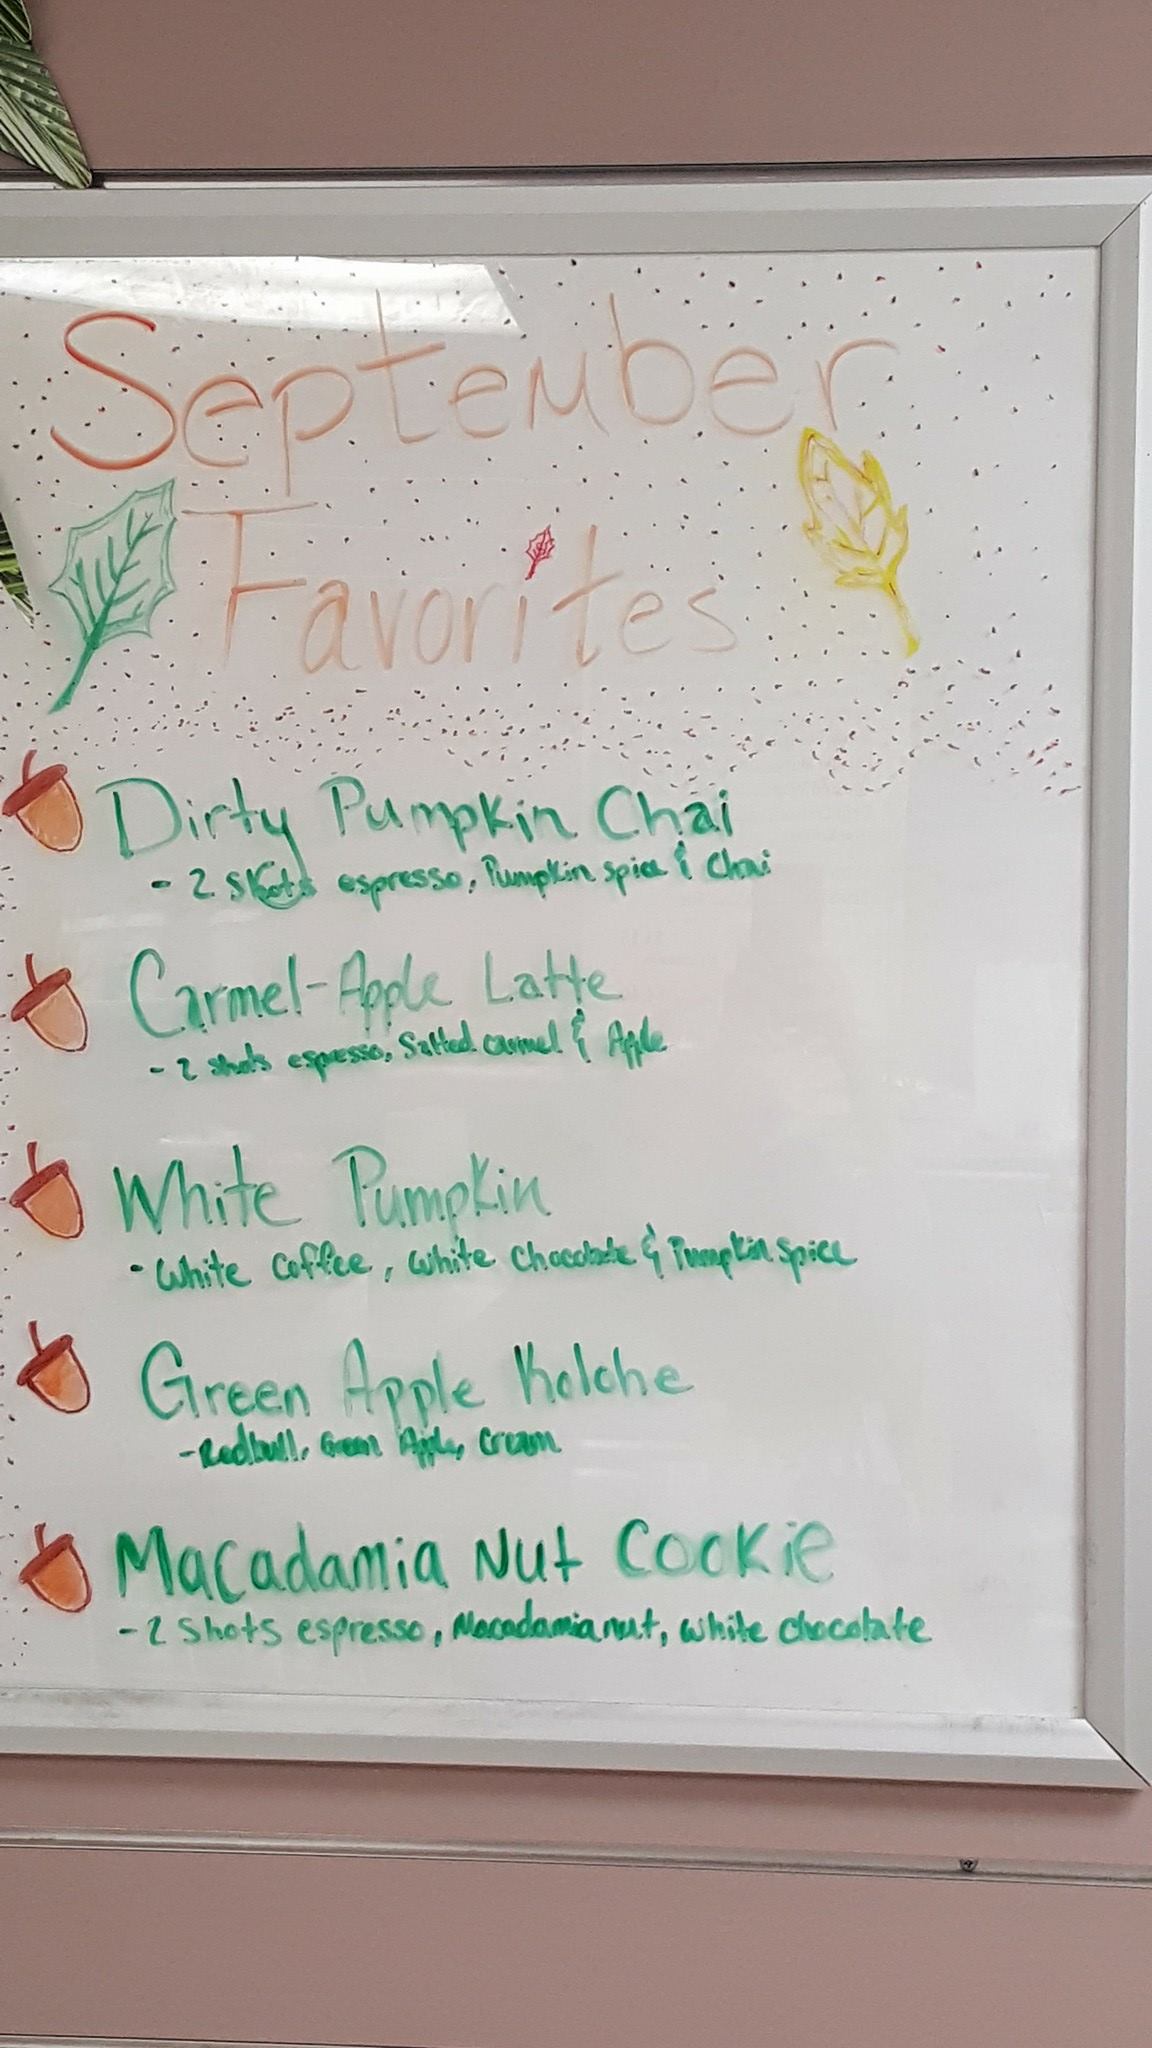 September
Favorites
Dirty Pumpkin Chai
- 2 shots espresso, Pumpkin spice & Chai
Carmel-Apple Latte
- 2 shots espresso, Salted carmel & Apple
White Pumpkin
- White coffee, white chocolate & Pumpkin spice
Green Apple Kolche
- Redbull, Green Apple, cream
Macadamia Nut Cookie
- 2 shots espresso, Macadamia nut, white chocolate